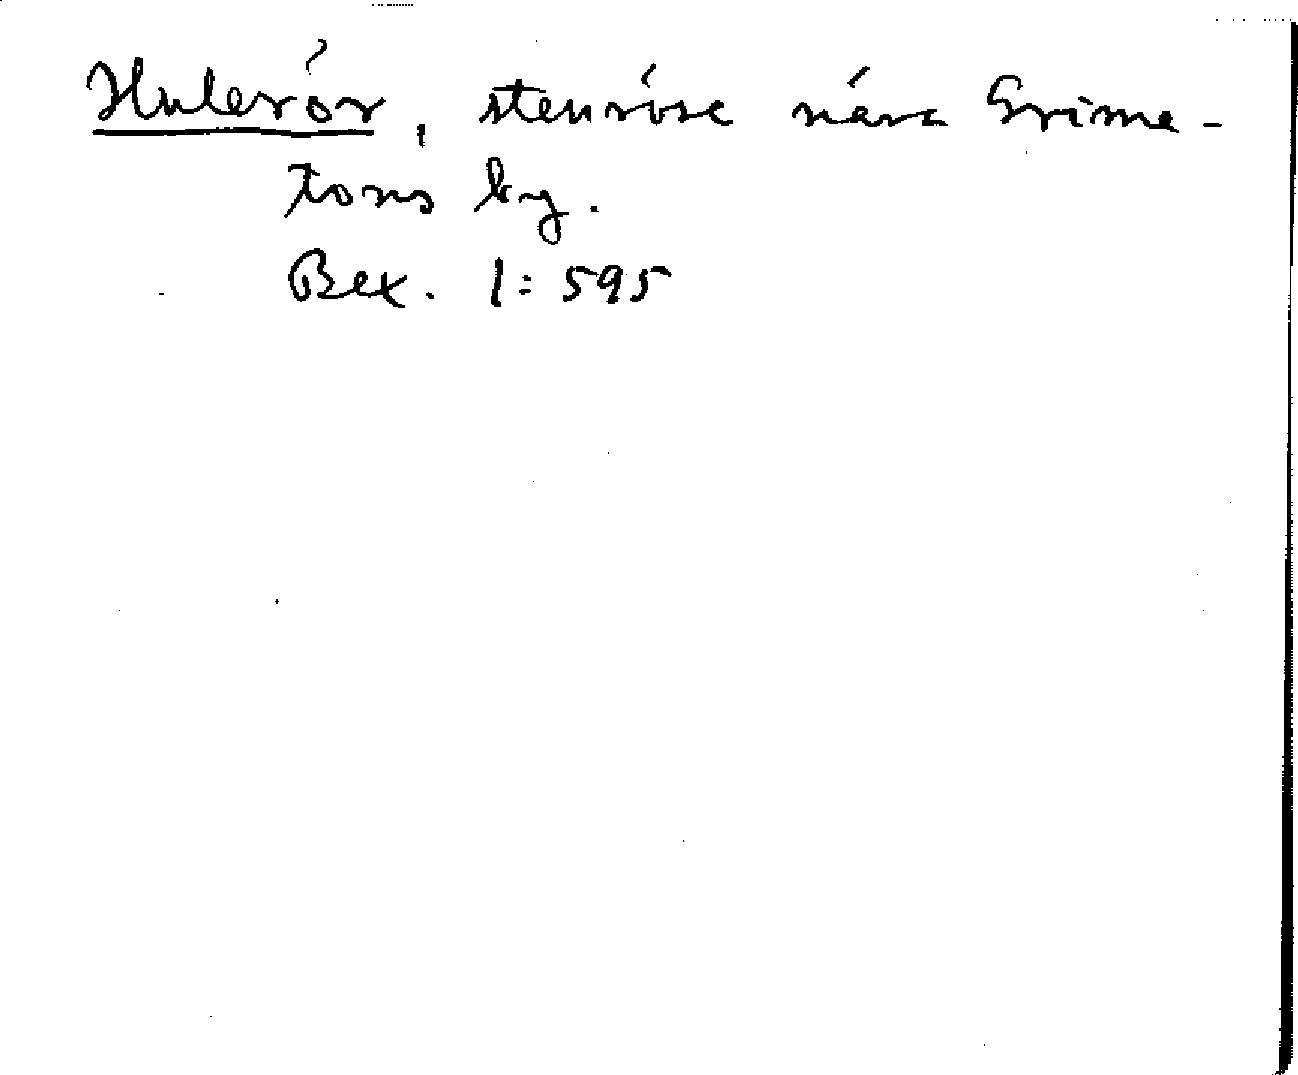 Hulerör, stenröse nära Grime-
tons by.
Bex. 1:595